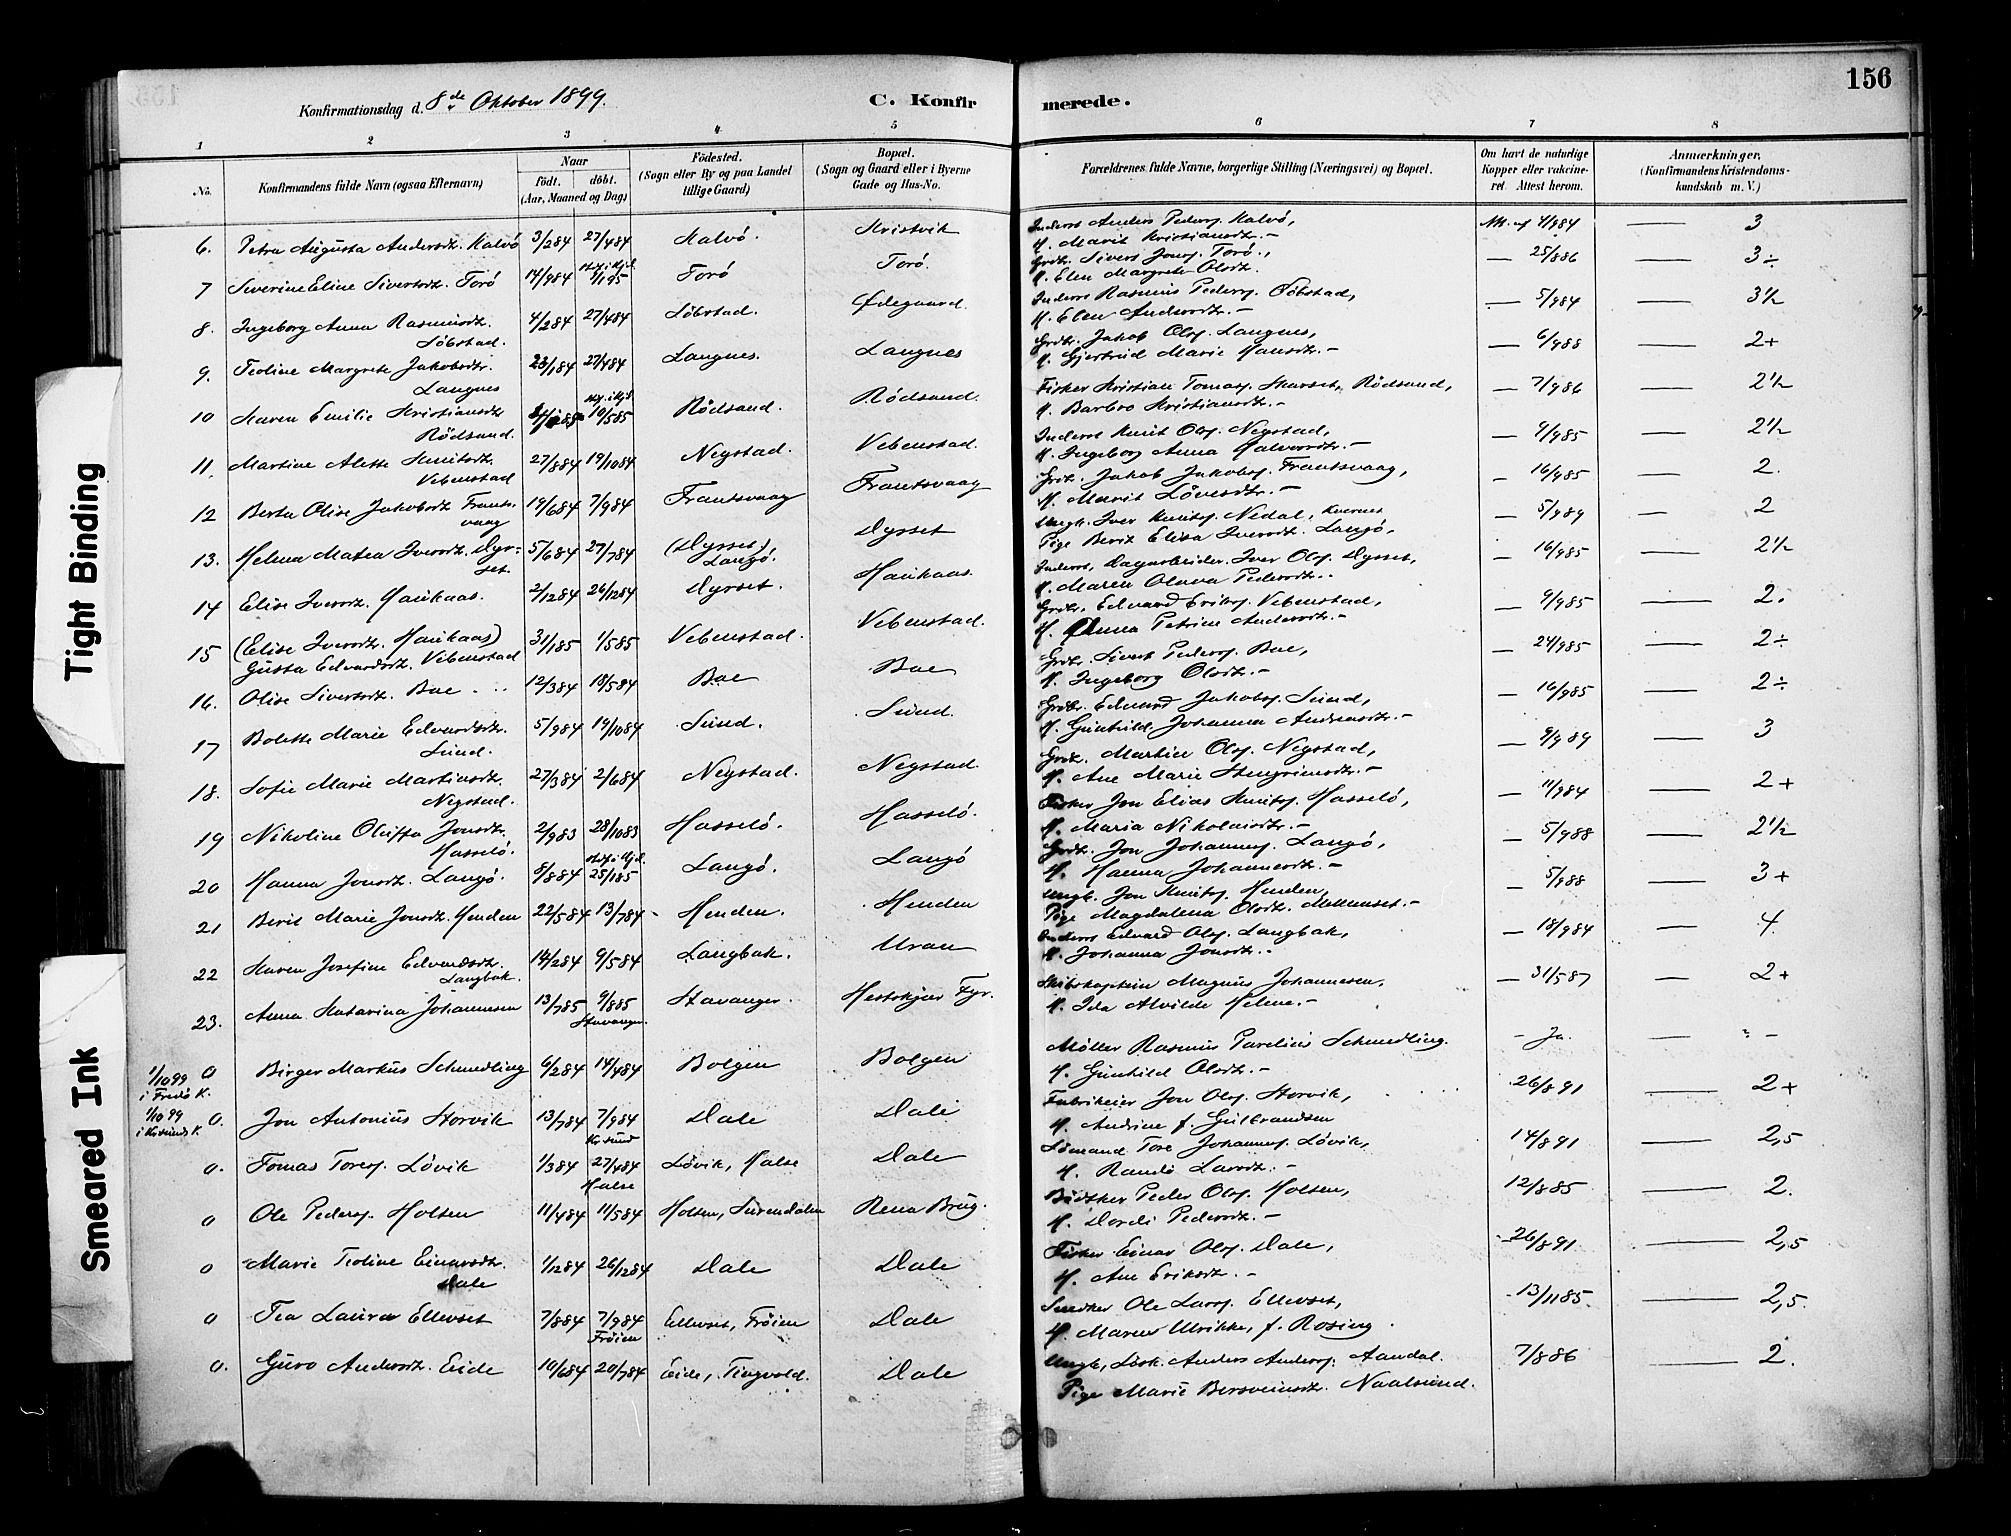 156
Konfirmationsdag d. 8de Oktober 1899.
C. Konfirmerede.
1 2 3 4 5 6 7 8
No. Konfirmandens fulde Navn (ogsaa Efternavn) Naar födt. döbt. (Aar, Maaned og Dag) Födested. (Sogn eller By og paa Landet tillige Gaard) Bopæl. (Sogn og Gaard eller i Byerne Gade og Hus-No. Forældrenes fulde Navne, borgerlige Stilling (Næringsvei) og Bopæl. Om havt de naturlige Kopper eller vakcineret. Attest herom. Anmærkninger. (Konfirmandens Kristendomskundskab m. V.)
6. Petra Augusta Andersdt. Kalvö 3/284 27/484 Kalvö. Kristvik Inderst Anders Peders. Kalvö, 4/984 — 3
H. Marit Kristiansdt. –
7 Severine Eline Sivertsdt. Torö 14/984 1/195 Torö Torö. Grdbr. Sivert Jons. Torö, — 25/886 — 3÷
H. Elen Margrete Olsdt.
8. Ingeborg Anna Rasmusdt. Löbstad. 4/284 27/484 Löbstad. Ødegaard. Inderst Rasmus Peders. Löbstad, — 5/984 — 3½
H. Elen Andersdt. –
9. Teoline Margrete Jakobsdt. Langnes 23/184 27/484 Langnes. Langnes Grdbr. Jakob Ols. Langnes, — 6/988 — 2+
H. Gjertrud Marie Hansdt. –
10 Karen Emilie Kristiansdt Rödsand. 10/585 Rödsand. Rödsand. Fisker Kristian Tomas. Skarset, Rödsand, — 7/986 — 2½
H. Barbro Kristiansdt. –
11. Martine Alette Knutsdt. Vebenstad 27/884 19/1084 Negstad. Vebenstad. Inderst Knut Ols. Negstad, — 9/985 — 2½
H. Ingeborg Anna Halvorsdt. –
12 Berta Olise Jakobsdt Frantsvaag 19/684 7/984 Frantsvaag Frantsvaag Grdbr. Jakob Jakobs. Frantsvaag, — 16/985 — 2.
H. Marit Lövesdt. –
13. Helma Matea Iversdt. Dyrset. 5/684 27/784 (Dyrset) Langö. Dyrset Ungk. Iver Knuts. Nedal, Kvernes — 5/989 — 2
Pige Berit Elisa Iversdt. Langö,
14 Elise Iversdt. Haukaas. 2/1284 26/1284 Dyrset. Haukaas. Inderst, Dagarbeider Iver Ols. Dyrset, — 16/985 — 2½
H. Maren Olava Pedersdt. –
15 (Elise Iversdt. Haukaas) Gusta Edvardsdt. Vebenstad 31/185 1/585 Vebenstad. Vebenstad. Grdbr. Edvard Eriks. Vebenstad, — 9/985 — 2.
H. Anna Petrine Andersdt. –
16. Olise Sivertsdt. Bae 12/384 18/584 Bae Bae Grdbr. Sivert Peders. Bae, — 24/985 — 2÷
H. Ingeborg Olsdt. –
17 Bolette Marie Edvardsdt. Sund. 5/984 19/1084 Sund. Sund. Grdbr. Edvard Jakobs. Sund, — 16/985 — 2÷
H. Gunhild Johanna Andreasdt. –
18. Sofie Marie Martinsdt. Negstad. 27/384 2/684 Negstad. Negstad. Grdbr. Martin Ols. Negstad, — 9/989 — 3
H. Ane Marie Stengrimsdt. –
19 Nikoline Oluffa Jonsdt. Hasselö. 2/983 28/1083 Hasselö. Hasselö. Fisker Jon Elias Knuts. Hasselö, — 11/984 — 2+
H. Maria Nikolaisdt. –
20 Hanna Jonsdt. Langö. 8/884 25/185 Langö. Langö Grdbr. Jon Johannes. Langö, — 5/988 — 2½
H. Hanna Johannesdt. –
21 Berit Marie Jonsdt. Henden 22/584 13/784 Henden. Henden Ungk. Jon Knuts. Henden, — 5/988 — 3+
Pige Magdalena Olsdt. –
22 Karen Josefine Edvardsdt. Langbak. 14/284 9/584 Langbak. Uran Inderst Edvard Ols. Langbak, — 18/984 — 4.
H. Johanna Jonsdt. –
23. Anna Katarina Johannesen 13/785 9/885 Stavanger. Stavanger. Hestskjær Fyr. Skibskaptein Magnus Johannesen, — 31/587 — 2+
H. Ida Alvilde Helene. –
1/1099 i Fredö K. 0 Birger Markus Schmedling 6/284 14/484 Bolgen Bolgen Möller Rasmus Parelius Schmedling. – Ja. – –
H. Gunhild Olsdt. –
1/1099 i Krsunds K. 0. Jon Antonius Storvik 13/784 7/984 Krsund Dale Dale Fabrikeier Jon Ols. Storvik, 26/891 — 2+
H. Andrine f. Gulbrandsen
0. Tomas Tores. Lövik 1/384 27/484 Halse Lövik, Halse Dale Sömand Tore Johannes. Lövik, 14/891 — 2,5
H. Randi Larsdt. –
0 Ole Peders. Holten 11/484 11/584 Holten, Surendalen Rena Brug. Bödker Peder Ols. Holten, 12/885 — 2.
H. Dordi Pedersdt. –
0 Marie Teoline Einarsdt. Dale 1/1284 26/1284 Dale Dale Fisker Einar Ols. Dale, 26/891 — 2,5
H. Ane Eriksdt. –
0 Tea Laura Ellevset 7/884 7/984 Fröien Ellevset, Fröien Dale Snedker Ole Lars. Ellevset, 13/1185. — 2,5.
H. Maren Ulrikke, f. Rosing.
0. Guro Andersdt. Eide 10/684 20/784 Eide, Tingvold. Dale Ungk. Anders Anders. Aandal. 7/886 — 2.
Pige Marie Bersveinsdt. Naalsund.
Tight Binding
Smeared Ink